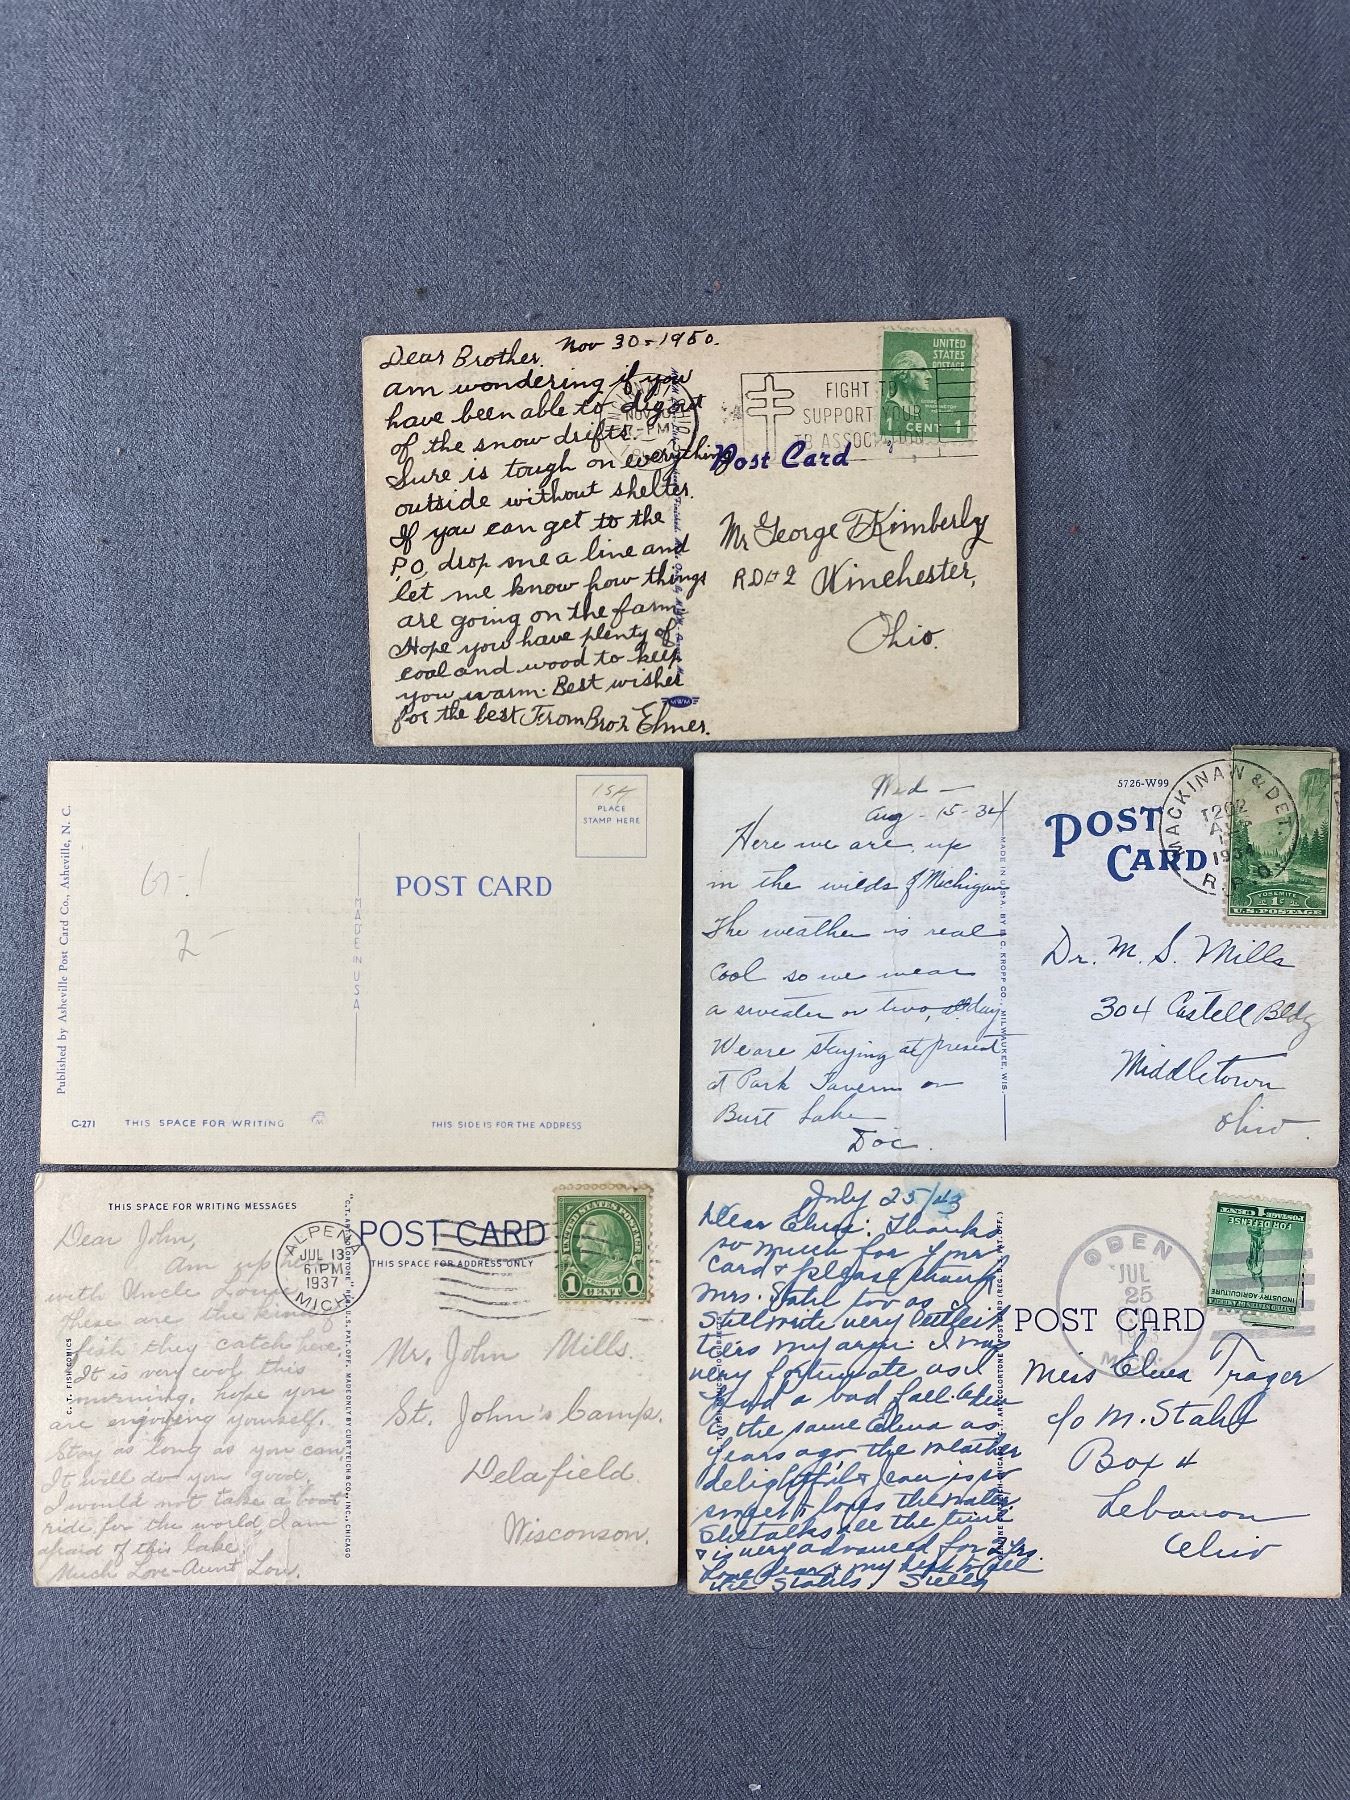 Nov 30-1950.
Dear Brother.
am wondering if you
have been able to dig out
of the snow drifts.
Sure is tough on everything
outside without shelter.
If you can get to the
P.O. drop me a line and
let me know how things
are going on the farm
Hope you have plenty of
coal and wood to keep
you warm. Best wishes
for the best From Bro2 Elmer.
UNITED
STATES
POSTAGE
1 CENT 1
FIGHT TB
SUPPORT YOUR
TB ASSOCIATION
Post Card
Mr George Kimberly
RD#2 Winchester,
Ohio.
MWM
Published by Asheville Post Card Co., Asheville, N. C.
15A
PLACE
STAMP HERE
G-1
2-
POST CARD
MADE IN USA
C-271
THIS SPACE FOR WRITING
THIS SIDE IS FOR THE ADDRESS
Wed -
Aug - 15 - 34
Here we are up
in the wilds of Michigan
The weather is real
cool so we wear
a sweater or two, all day
We are staying at present
at Park Tavern on
Burt Lake
Doc.
MADE IN U.S.A. BY E. C. KROPP CO., MILWAUKEE, WIS.
5726-W99
POST
CARD
MACKINAW & DET.
R.P.O.
YOSEMITE
1¢
U.S. POSTAGE
Dr. M. S. Mills
304 Castell Bldg
Middletown
Ohio.
THIS SPACE FOR WRITING MESSAGES
Dear John,
Am up here
with Uncle Louie
These are the kind of
fish they catch here.
It is very cool this
morning. hope you
are enjoying yourself.
Stay as long as you can
It will do you good.
I would not take a boat
ride for the world I am
afraid of this lake.
Much Love-Aunt Lou.
C. T. FISH COMICS
"C.T. ART-COLORTONE" REG. U.S. PAT. OFF. MADE ONLY BY CURT TEICH & CO., INC., CHICAGO
ALPENA
JUL 13
6 PM
1937
MICH.
POST CARD
THIS SPACE FOR ADDRESS ONLY
UNITED STATES POSTAGE
1 CENT 1
Mr. John Mills.
St. John's Camp.
Delafield.
Wisconson.
July 25/43
Dear Elva: Thanks
so much for your
card & please thank
Mrs. Stahl too as I
Still write very
my arm. I was
very fortunate as I
had a bad fall.
is the same Elva as
years ago, the weather
delightful & is so
sweet & loves the water.
She talks all the time
& is very advanced for 2 yrs.
Love dear & my best to all
the Stahls. Stella
ODEN
JUL
25
MICH.
POST CARD
FOR DEFENSE
INDUSTRY AGRICULTURE
Miss Elva Trager
c/o M. Stahl
Box 4
Lebanon
Ohio